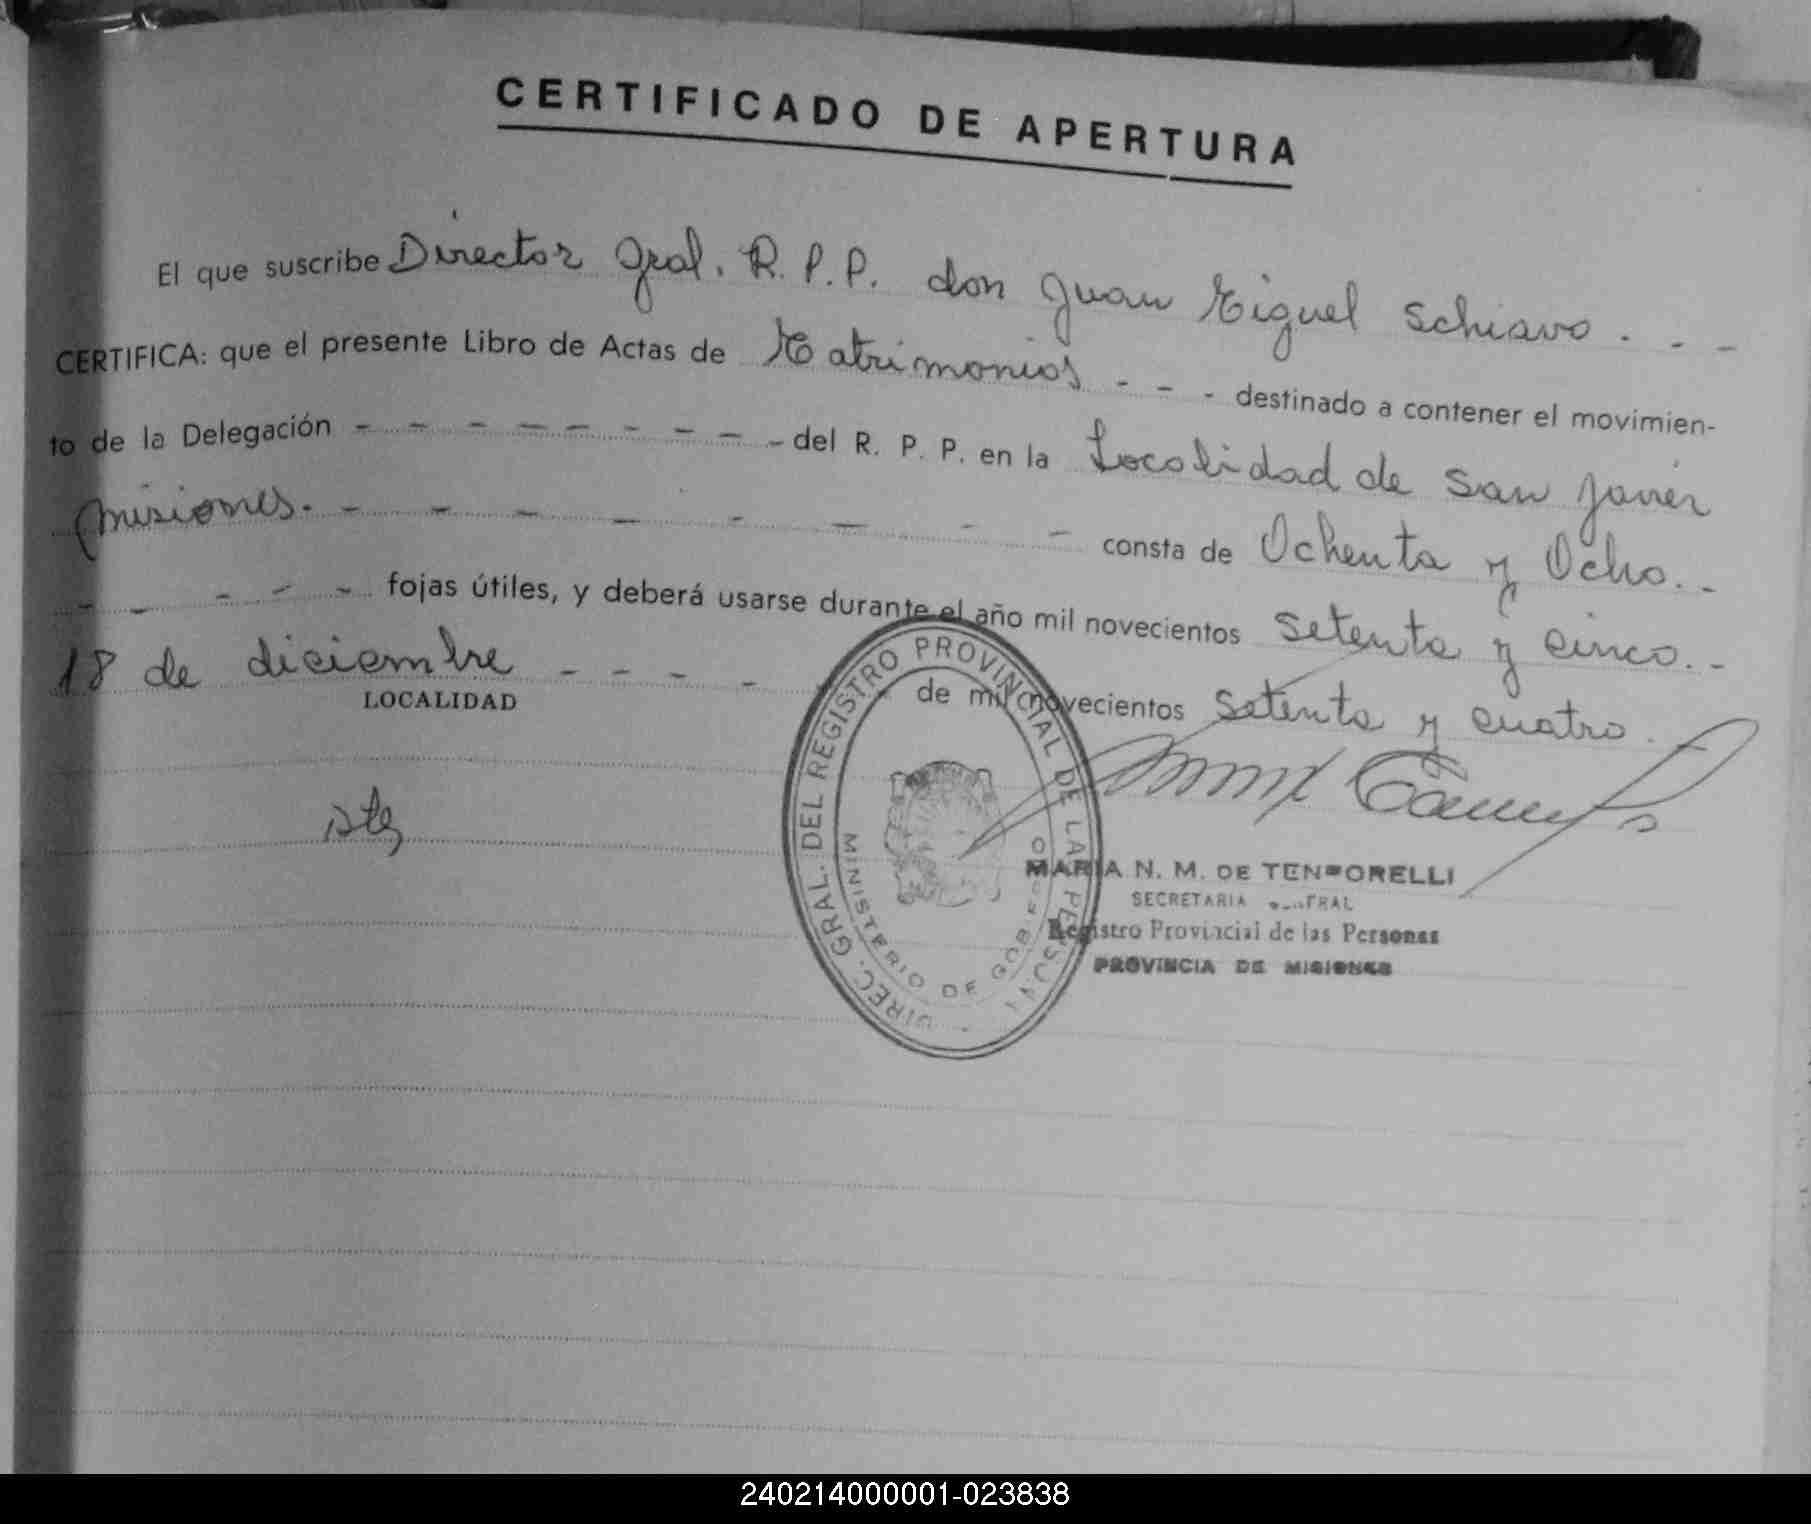 CERTIFICADO DE APERTURA
El que suscribe Director Gral. R. P. P. don Juan Miguel Schiavo. - -
CERTIFICA: que el presente Libro de Actas de Matrimonios - - - destinado a contener el movimien-
to de la Delegación - - - - - - - - - del R. P. P. en la Localidad de San Javier
Misiones. - - - - - - - - - consta de Ochenta y Ocho. -
- - - - - fojas útiles, y deberá usarse durante el año mil novecientos setenta y cinco. -
18 de diciembre - - - - de mil novecientos setenta y cuatro.
LOCALIDAD
DIREC. GRAL. DEL REGISTRO PROVINCIAL DE LA
MINISTERIO DE GOBIERNO
MARIA N. M. DE
SECRETARIA
Registro Provincial de las Personas
PROVINCIA DE MISIONES
240214000001-023838